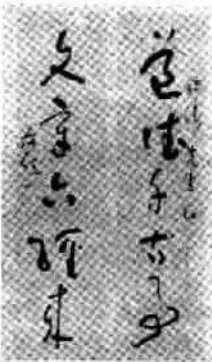 道德千古事
文章六經來